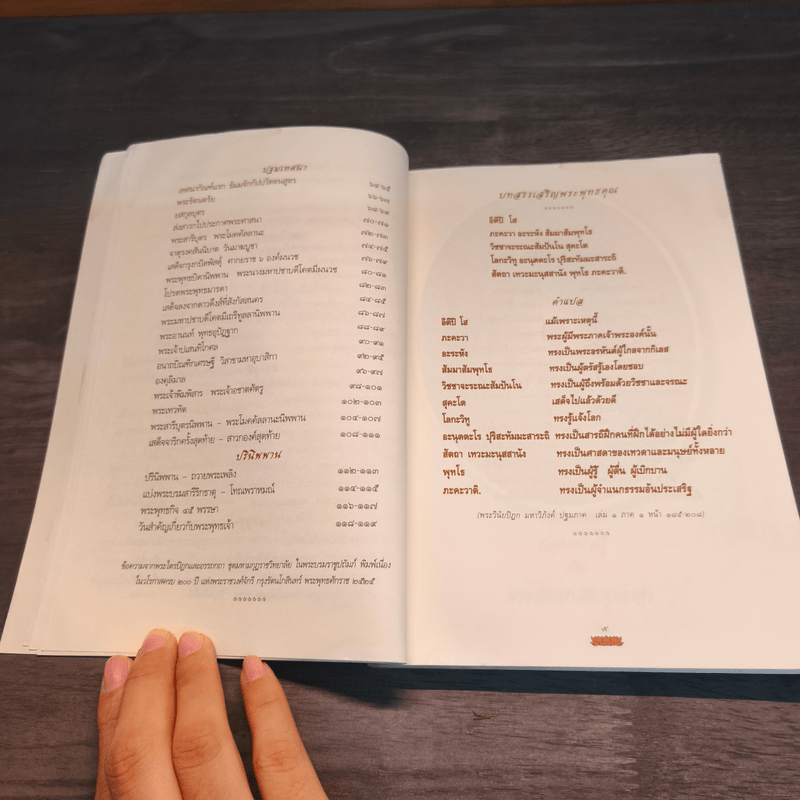 ปฐมเทศนา
เทศนากัณฑ์แรก ธัมมจักกัปปวัตตนสูตร ๖๔-๖๕
พระรัตนตรัย ๖๖-๖๗
ยสกุลบุตร ๖๘-๖๙
ส่งสาวกไปประกาศพระศาสนา ๗๐-๗๑
พระสารีบุตร พระโมคคัลลานะ ๗๒-๗๓
จาตุรงคสันนิบาต วันมาฆบูชา ๗๔-๗๕
เสด็จกรุงกบิลพัสดุ์ ศากยราช ๖ องค์ผนวช ๗๖-๗๙
พระพุทธบิดานิพพาน พระนางมหาปชาบดีโคตมีผนวช ๘๐-๘๑
โปรดพระพุทธมารดา ๘๒-๘๓
เสด็จลงจากดาวดึงส์ที่สังกัสสนคร ๘๔-๘๕
พระมหาปชาบดีโคตมีเถรีทูลลานิพพาน ๘๖-๘๗
พระอานนท์ พุทธอุปัฏฐาก ๘๘-๘๙
พระเจ้าปเสนทิโกศล ๙๐-๙๑
อนาถบิณฑิกเศรษฐี วิสาขามหาอุบาสิกา ๙๒-๙๕
องคุลิมาล ๙๖-๙๗
พระเจ้าพิมพิสาร พระเจ้าอชาตศัตรู ๙๘-๑๐๑
พระเทวทัต ๑๐๒-๑๐๓
พระสารีบุตรนิพพาน - พระโมคคัลลานะนิพพาน ๑๐๔-๑๐๗
เสด็จจาริกครั้งสุดท้าย - สาวกองค์สุดท้าย ๑๐๘-๑๑๑
ปรินิพพาน
ปรินิพพาน - ถวายพระเพลิง ๑๑๒-๑๑๓
แบ่งพระบรมสารีริกธาตุ - โทณพราหมณ์ ๑๑๔-๑๑๕
พระพุทธกิจ ๔๕ พรรษา ๑๑๖-๑๑๗
วันสำคัญเกี่ยวกับพระพุทธเจ้า ๑๑๘-๑๑๙
ข้อความจากพระไตรปิฎกและอรรถกถา ชุดมหามกุฏราชวิทยาลัย ในพระบรมราชูปถัมภ์ พิมพ์เนื่อง
ในวโรกาสครบ ๒๐๐ ปี แห่งพระราชวงศ์จักรี กรุงรัตนโกสินทร์ พระพุทธศักราช ๒๕๒๕
บทสรรเสริญพระพุทธคุณ
อิติปิ โส
ภะคะวา อะระหัง สัมมาสัมพุทโธ
วิชชาจะระณะสัมปันโน สุคะโต
โลกะวิทู อะนุตตะโร ปุริสะทัมมะสาระถิ
สัตถา เทวะมะนุสสานัง พุทโธ ภะคะวาติ.
คำแปล
อิติปิ โส แม้เพราะเหตุนี้
ภะคะวา พระผู้มีพระภาคเจ้าพระองค์นั้น
อะระหัง ทรงเป็นพระอรหันต์ผู้ไกลจากกิเลส
สัมมาสัมพุทโธ ทรงเป็นผู้ตรัสรู้เองโดยชอบ
วิชชาจะระณะสัมปันโน ทรงเป็นผู้ถึงพร้อมด้วยวิชชาและจรณะ
สุคะโต เสด็จไปแล้วด้วยดี
โลกะวิทู ทรงรู้แจ้งโลก
อะนุตตะโร ปุริสะทัมมะสาระถิ ทรงเป็นสารถีฝึกคนที่ฝึกได้อย่างไม่มีผู้ใดยิ่งกว่า
สัตถา เทวะมะนุสสานัง ทรงเป็นศาสดาของเทวดาและมนุษย์ทั้งหลาย
พุทโธ ทรงเป็นผู้รู้ ผู้ตื่น ผู้เบิกบาน
ภะคะวาติ. ทรงเป็นผู้จำแนกธรรมอันประเสริฐ
(พระวินัยปิฎก มหาวิภังค์ ปฐมภาค เล่ม ๑ ภาค ๑ หน้า ๑๘๕-๒๐๘)